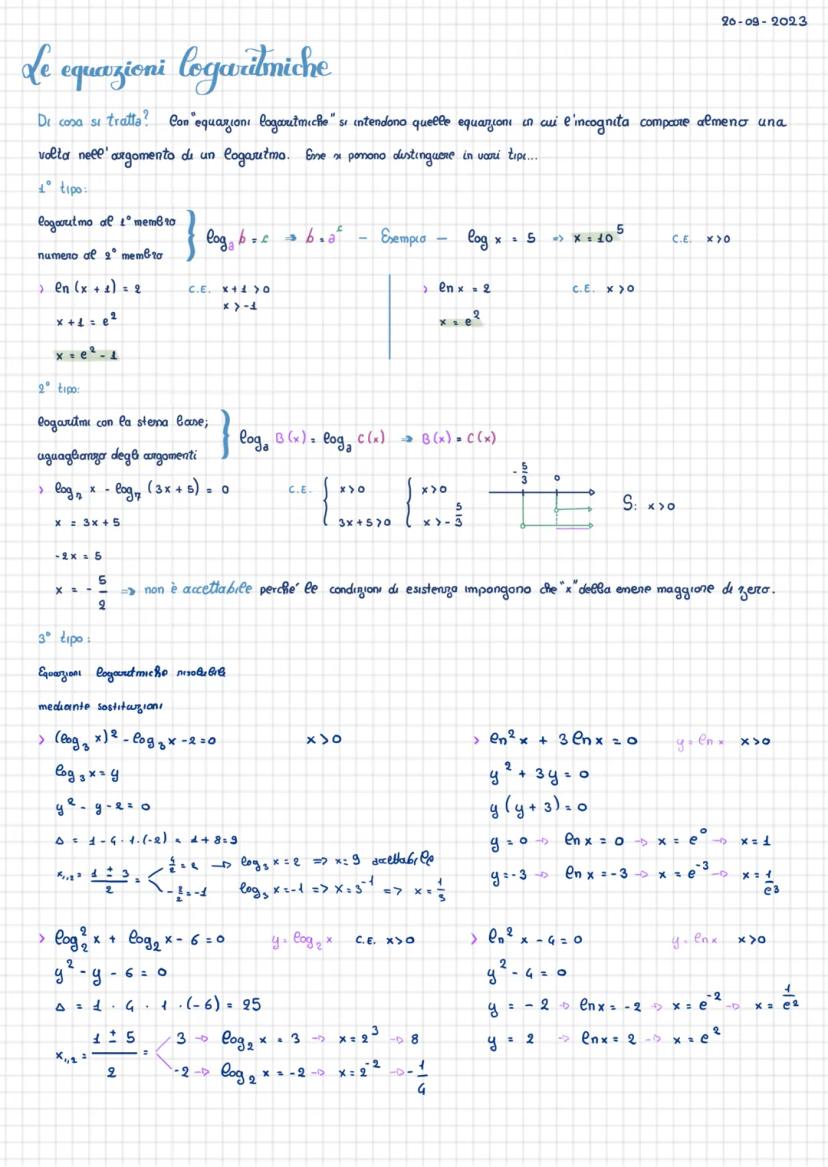 20-09-2023
Le equazioni logaritmiche
Di cosa si tratta? Con "equazioni logaritmiche" si intendono quelle equazioni in cui l'incognita compare almeno una
volta nell'argomento di un logaritmo. Esse si possono distinguere in vari tipi...
1° tipo:
logaritmo al 1° membro
numero al 2° membro
logₐ b = c ⇒ b = a^c - Esempio - log x = 5 ⇒ x = 10^5 C.E. x > 0
> ln (x + 1) = 2 C.E. x + 1 > 0
x > -1
x + 1 = e^2
x = e^2 - 1
> ln x = 2 C.E. x > 0
x = e^2
2° tipo:
logaritmi con la stessa base;
uguaglianza degli argomenti
logₐ B(x) = logₐ C(x) ⇒ B(x) = C(x)
> log₇ x - log₇ (3x + 5) = 0 C.E. { x > 0 { x > 0 -5/3 0 S: x > 0
x = 3x + 5 3x + 5 > 0 x > -5/3
-2x = 5
x = -5/2 ⇒ non è accettabile perché le condizioni di esistenza impongono che "x" debba essere maggiore di zero.
3° tipo:
Equazioni logaritmiche risolubili
mediante sostituzioni
> (log₃ x)² - log₃ x - 2 = 0 x > 0
log₃ x = y
y² - y - 2 = 0
Δ = 1 - 4 · 1 · (-2) = 1 + 8 = 9
x₁,₂ = (1 ± 3)/2 = < 4/2 = 2 → log₃ x = 2 ⇒ x = 9 accettabile
-2/2 = -1 log₃ x = -1 ⇒ x = 3^-1 ⇒ x = 1/3
> ln² x + 3 ln x = 0 y = ln x x > 0
y² + 3y = 0
y (y + 3) = 0
y = 0 → ln x = 0 → x = e^0 → x = 1
y = -3 → ln x = -3 → x = e^-3 → x = 1/e^3
> log₂² x + log₂ x - 6 = 0 y = log₂ x C.E. x > 0
y² - y - 6 = 0
Δ = 1 · 4 · 1 · (-6) = 25
x₁,₂ = (1 ± 5)/2 = < 3 → log₂ x = 3 → x = 2^3 → 8
-2 → log₂ x = -2 → x = 2^-2 → -1/4
> ln² x - 4 = 0 y = ln x x > 0
y² - 4 = 0
y = -2 → ln x = -2 → x = e^-2 → x = 1/e^2
y = 2 → ln x = 2 → x = e^2